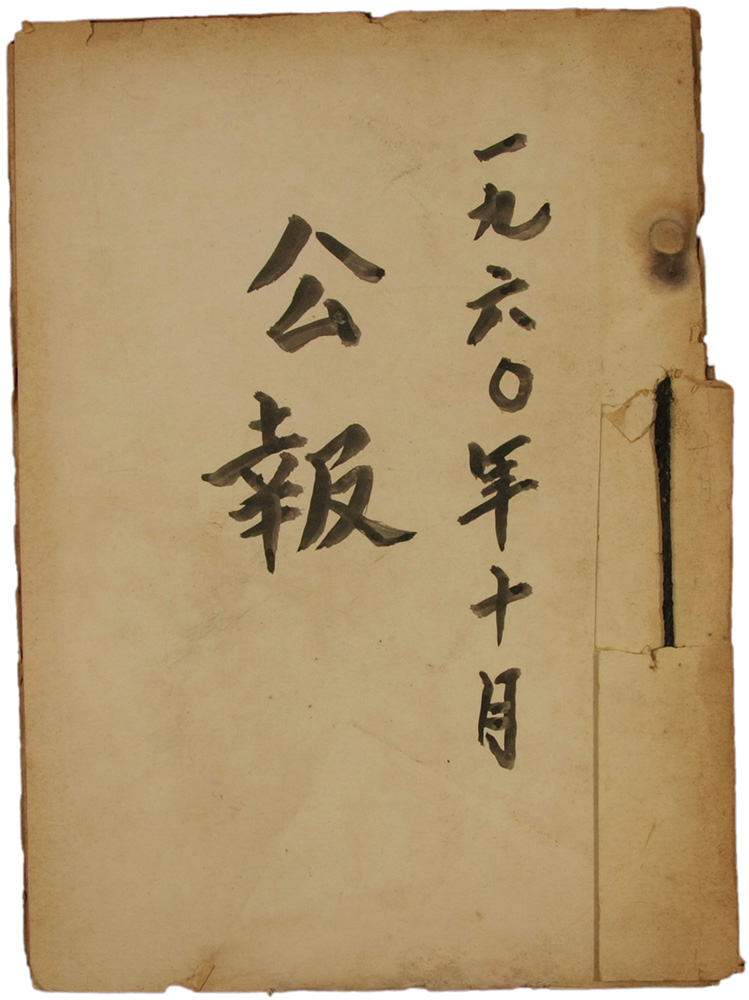 一九六〇年十月
公報